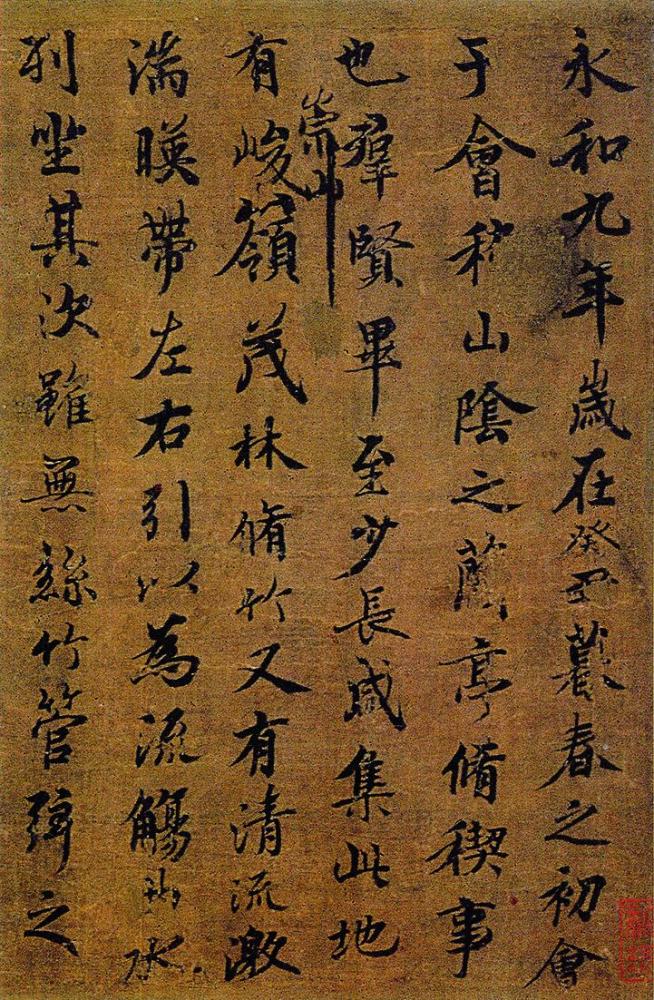 永和九年歲在癸丑暮春之初會
于會稽山陰之蘭亭脩稧事
也羣賢畢至少長咸集此地
有崇山峻嶺茂林脩竹又有清流激
湍暎帶左右引以為流觴曲水
列坐其次雖無絲竹管弦之